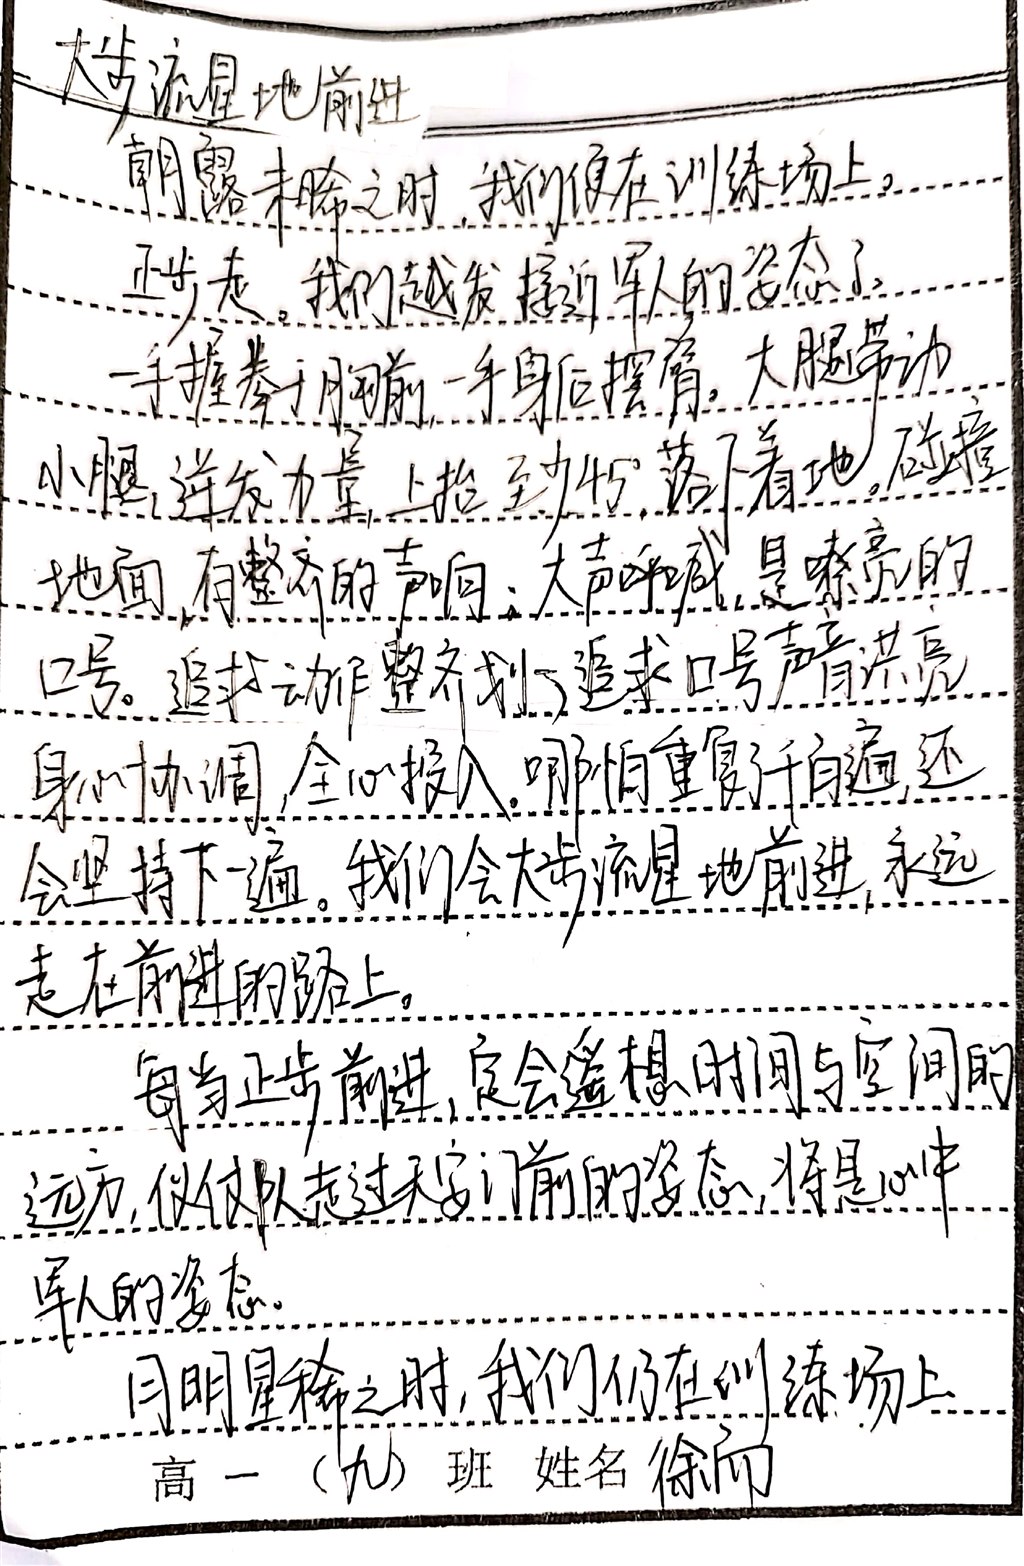 大步流星地前进
朝露未晞之时,我们便在训练场上。
正步走。我们越发接近军人的姿态了。
一手握拳于胸前,一手身后摆臂。大腿带动
小腿,迸发力量,上抬至少45°,落下着地。碰撞
地面,有整齐的声响;大声呼喊,是嘹亮的
口号。追求动作整齐划一,追求口号声音洪亮
身心协调,全心投入。哪怕重复了千百遍,还
会坚持下一遍。我们会大步流星地前进,永远
走在前进的路上。
每当正步前进,定会遥想时间与空间的
远方,仪仗队走过天安门前的姿态,将是心中
军人的姿态。
月明星稀之时,我们仍在训练场上
高一(九)班 姓名 徐